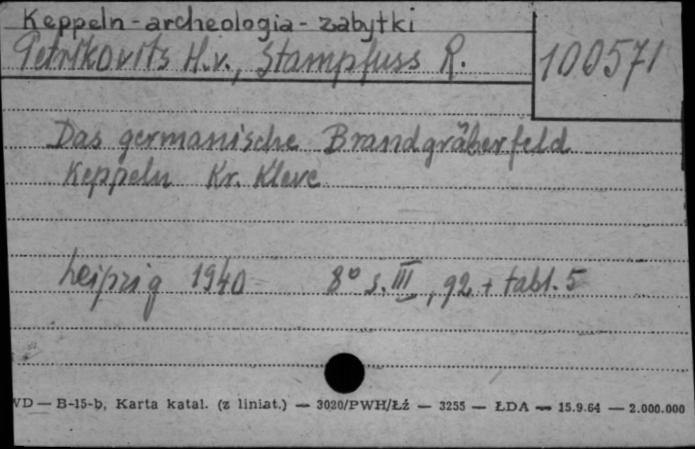 Keppeln - archeologia - zabytki
Petrikovits H.v., Stampfuss R.
100571
Das germanische Brandgräberfeld
Keppeln Kr. Kleve
Leipzig 1940 8° s. III, 92 + tabl. 5
WD — B-15-b, Karta katal. (z liniat.) — 3020/PWH/Łź — 3255 — ŁDA — 15.9.64 — 2.000.000